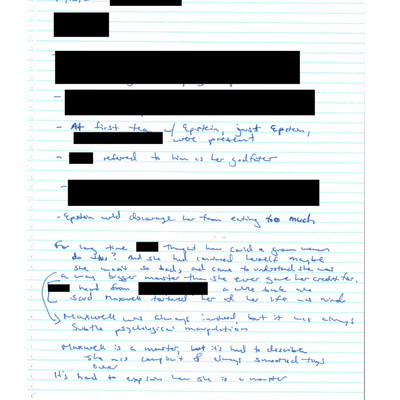 - At first tea w/ Epstein, just Epstein,
were present
- referred to him as her godfather
- Epstein would discourage her from eating too much
For long time thought how could a grown woman
do this? And she had convinced herself maybe
she wasn't so bad, and came to understand she was
a way bigger monster than she ever gave her credit for.
heard from a
said Maxwell tortured her & her life was
→ Maxwell was always involved, but it was always
subtle psychological manipulation
Maxwell is a monster, but it's hard to describe
She was complicit & always smoothed things
over
It's hard to explain how she is a monster